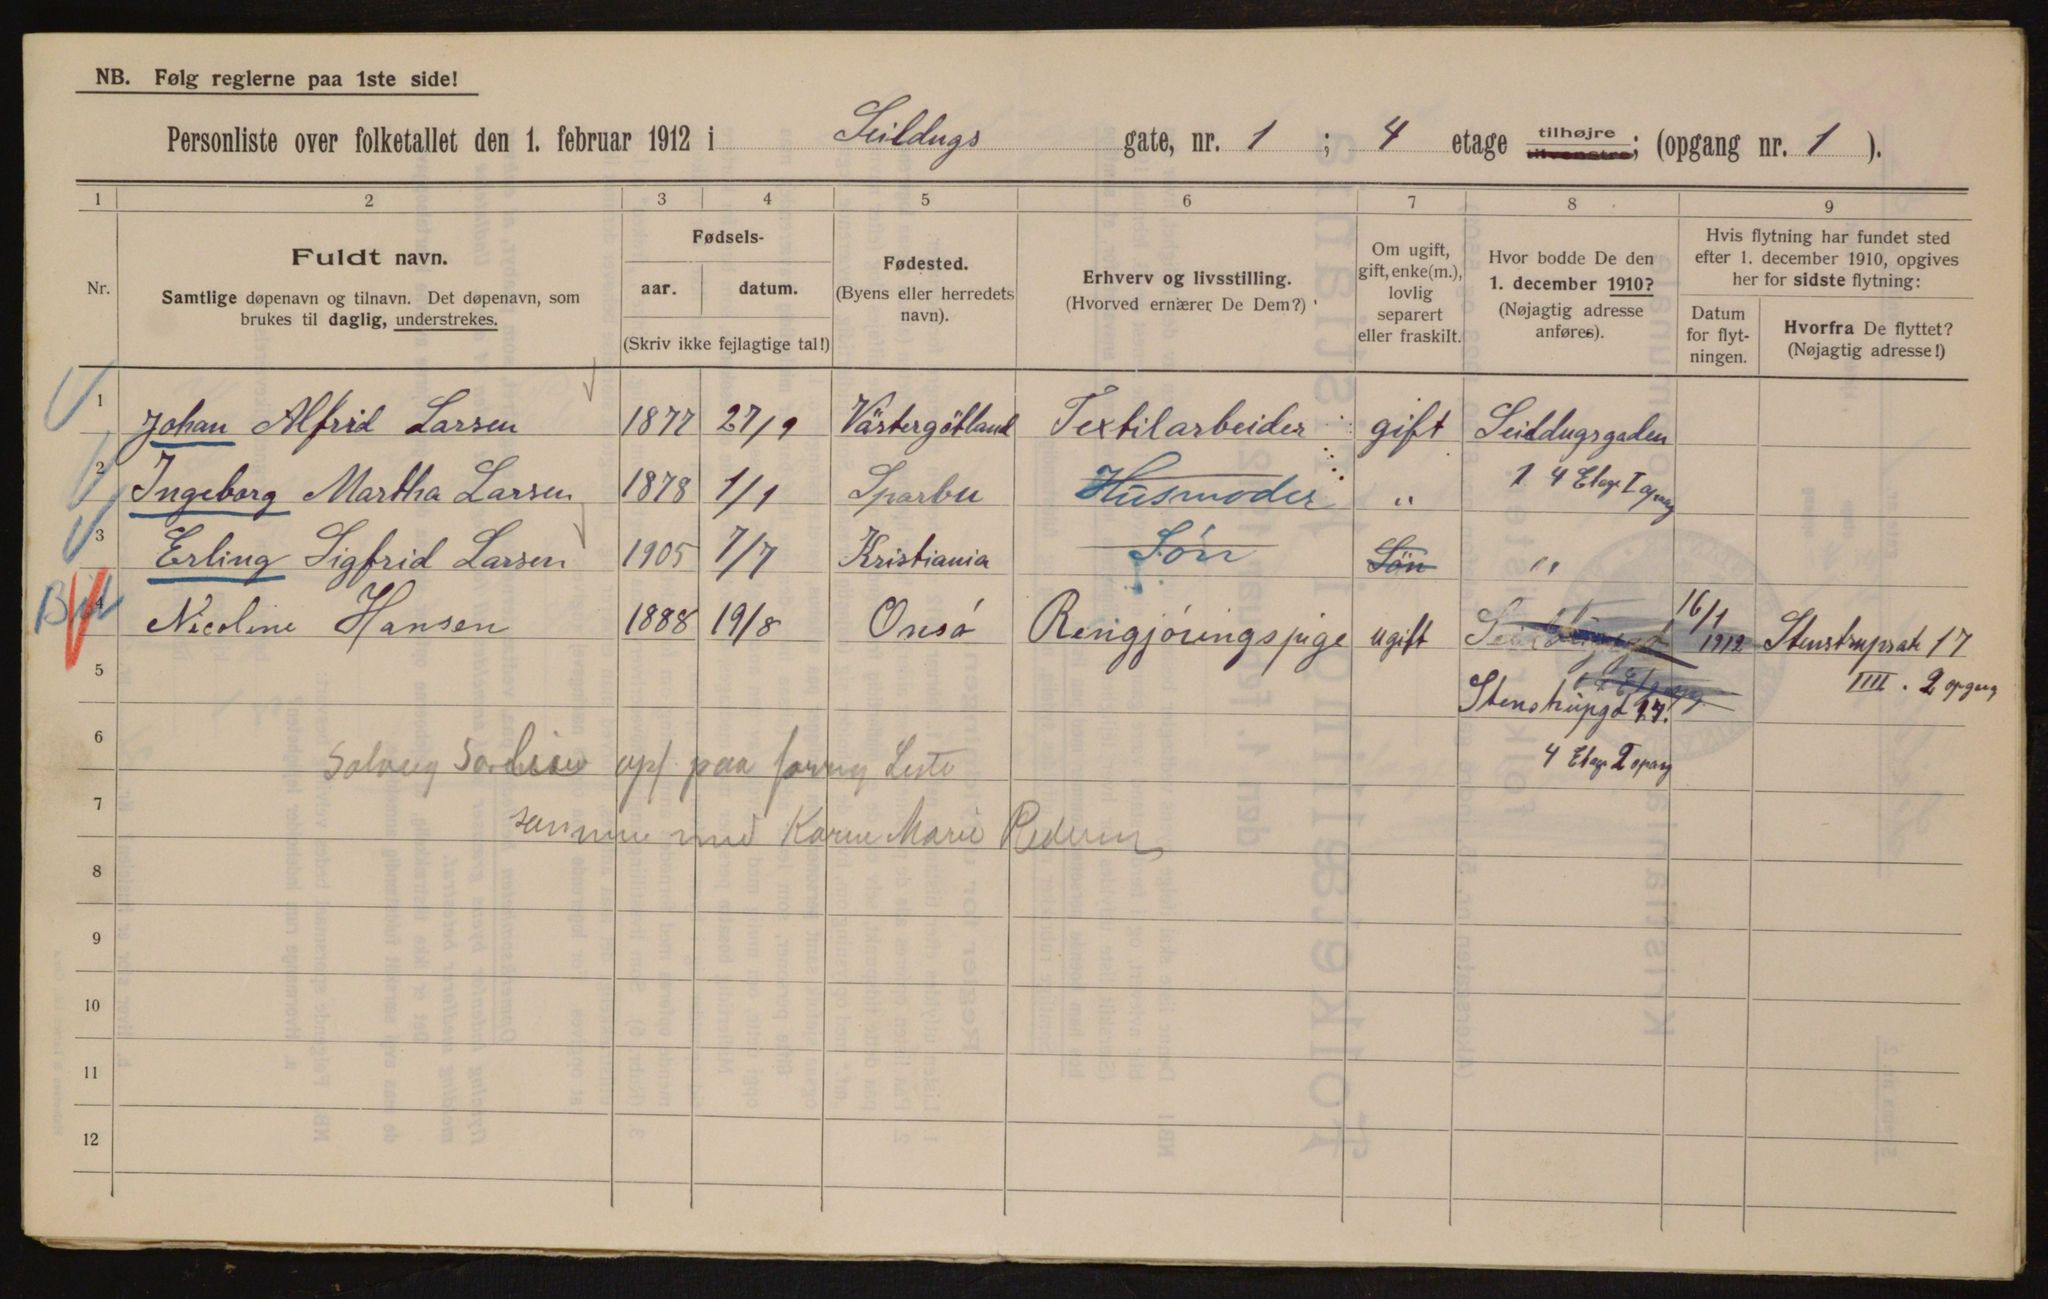 NB. Følg reglerne paa 1ste side!
Personliste over folketallet den 1. februar 1912 i Seildugs gate, nr. 1 ; 4 etage tilhøjre tilvenstre; (opgang nr. 1 ).
1 2 3 4 5 6 7 8 9
Nr.
Fuldt navn.
Samtlige døpenavn og tilnavn. Det døpenavn, som
brukes til daglig, understrekes.
Fødsels-
aar. datum.
(Skriv ikke fejlagtige tal!)
Fødested.
(Byens eller herredets
navn).
Erhverv og livsstilling.
(Hvorved ernærer De Dem?)
Om ugift,
gift, enke(m.),
lovlig
separert
eller fraskilt.
Hvor bodde De den
1. december 1910?
(Nøjagtig adresse
anføres).
Hvis flytning har fundet sted
efter 1. december 1910, opgives
her for sidste flytning:
Datum
for flyt-
ningen.
Hvorfra De flyttet?
(Nøjagtig adresse!)
1 Johan Alfrid Larsen 1877 27/9 Västergötland Textilarbeider gift Seildugsgaden
2 Ingeborg Martha Larsen 1878 1/1 Sparbu Husmoder " 1 4 Etage I opang
3 Erling Sigfrid Larsen 1905 7/7 Kristiania Søn Søn "
4 Nicoline Hansen 1888 19/8 Onsö Rengjöringspige ugift 16/1 1912 Stenstrupsgt 17
5 Stenstrupgt 17. IIII. 2 opgang
6 4 Etage 2 opang
Solveig opf paa forrig Liste
7
samme med Karen Marie Pedersen
8
9
10
11
12